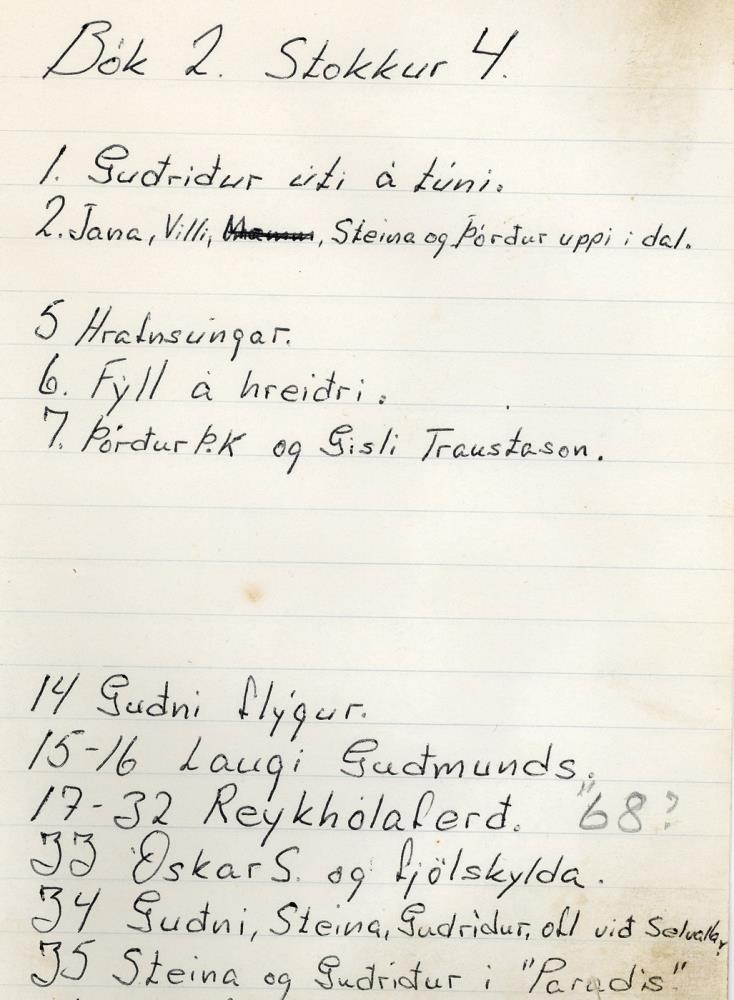 Bók 2. Stokkur 4.
1. Guðriður úti á túni.
2. Jana, Villi, , Steina og Þórður uppi i dal.
5 Hrafnsungar.
6. Fýll á hreiðri.
7. Þórður Þ.K og Gisli Traustason.
14 Guðni flýgur.
15-16 Laugi Guðmunds.
17-32 Reykhólaferð. "68?
33 Óskar S. og fjölskylda.
34 Guðni, Steina, Guðriður, ofl við
35 Steina og Guðriður i "Paradis"